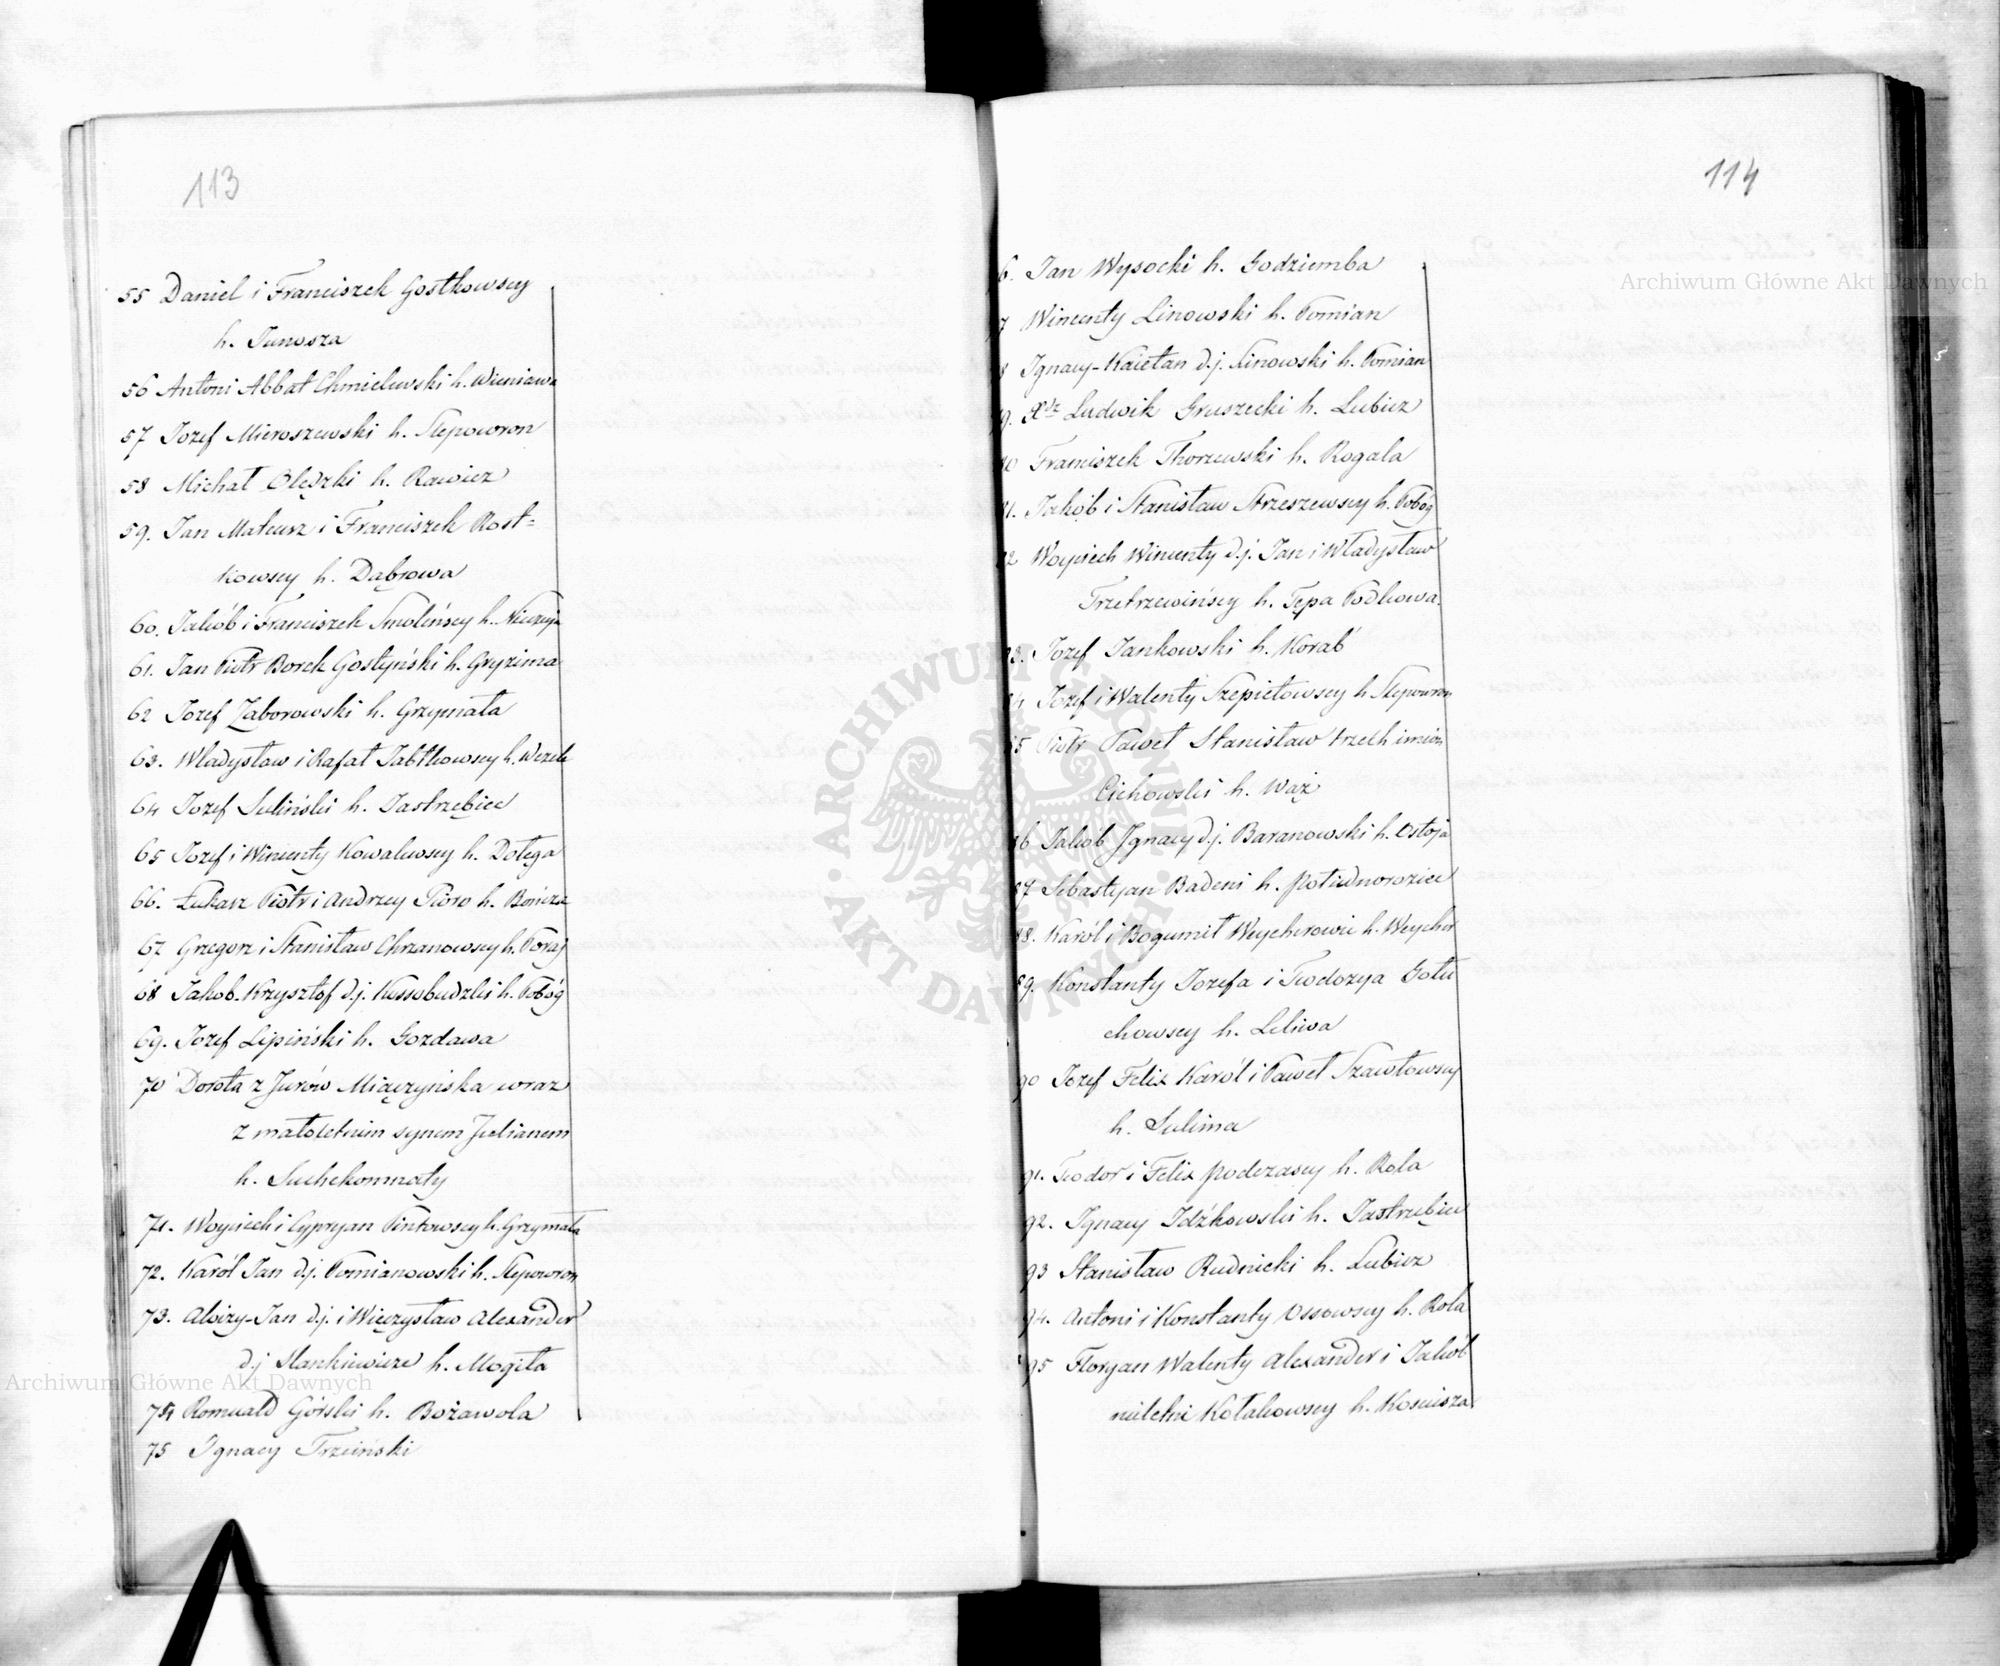 113
55 Daniel i Franciszek Gostkowscy
h. Junosza
56 Antoni Abbat Chmielewski h. Wieniawa
57 Jozef Mieroszewski h. Slepowron
58 Michał Olędzki h. Rawicz
59. Jan Mateusz i Franciszek Rost=
kowscy h. Dąbrowa
60. Jakób i Franciszek Smoleńscy h. Nieczuja
61. Jan Piotr Borek Gostyński h. Gryzima
62 Jozef Zaborowski h. Grzymała
63. Władysław i Rafał Jabłkowscy h. Wczele
64 Jozef Suliński h. Jastrzębiec
65 Jozef i Wincenty Kowalewscy h. Dołęga
66. Łukasz Piotr i Andrzey Pioro h. Bończa
67 Grzegorz i Stanisław Chrzanowscy h. Poraj
68 Jakob-Krzysztof d.j. Kossobudzki h. Pobóg
69. Jozef Lipiński h. Gozdawa
70 Dorota z Jurów Miączyńska wraz
z małoletnim synem Julianem
h. Suchekomnaty
71. Woyciech i Cypryan Pintowscy h. Grzymała
72. Karól Jan d.j. Pomianowski h. Slepowron
73. Aloizy-Jan d.j. i Mieczysław Alexander
d.j Stankiewicze h. Mogiła
74 Romuald Górski h. Bożawola
75 Ignacy Trzciński
114
6. Jan Wysocki h. Godziemba
7 Wincenty Linowski h. Pomian
8 Ignacy-Kaietan d.j. Linowski h. Pomian
9. Xdz Ludwik Gruszecki h. Lubicz
80 Franciszek Thorzewski h. Rogala
81. Jakób i Stanisław Strzeszewscy h. Pobóg
82 Woyciech Wincenty d.j. Jan i Władysław
Trzetrzewińscy h. Tępa Podkowa.
83. Józef Jankowski h. Korab
84 Jozef i Walenty Szepietowscy h Slepowron
85 Piotr Paweł Stanisław trzech imion
Cichowski h. Wąż
86 Jakob Ignacy d.j. Baranowski h. Ostoja
87 Sebastyan Badeni h. Połiednorożiec
88. Karól i Bogumił Weycherowie h. Weyher
89. Konstanty Jozefa i Teodozya Gołu
chowscy h. Leliwa
90 Jozef Felix Karól i Paweł Szawłowscy
h. Sulima
91. Teodor i Felix Podczascy h. Rola
92. Ignacy Idźkowski h. Jastrzębiec
93 Stanisław Rudnicki h. Lubicz
94. Antoni i Konstanty Ossowscy h. Rola
95 Floryan Walenty Alexander i Jakób
nieletni Kołakowscy h. Kościesza
Archiwum Główne Akt Dawnych
Archiwum Główne Akt Dawnych
ARCHIWUM GŁÓWNE
AKT DAWNYCH